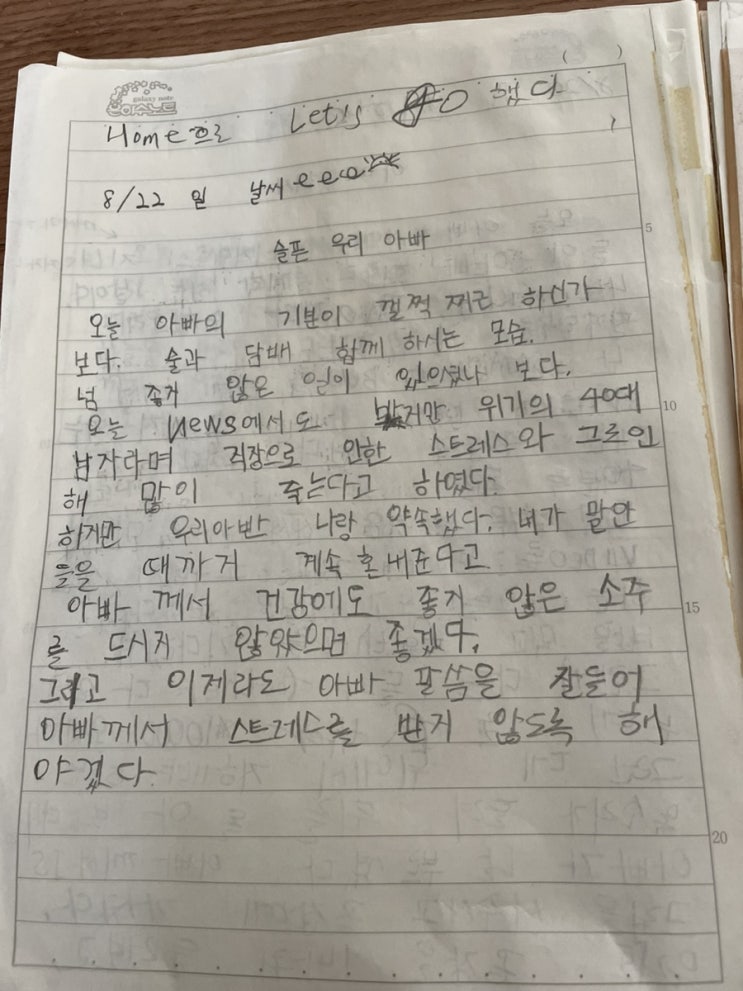 galaxy note
은하수노트
( )
Home으로 Let's go 했다
8/22 일 날씨
슬픈 우리 아빠
5
오늘 아빠의 기분이 찌끈 하신가
보다. 술과 담배 함께 하시는 모습.
넘 좋지 않은 일이 있으셨나 보다.
오늘 News에서도 위기의 40대
10
남자라며 직장으로 인한 스트레스와 그로인
해 많이 죽는다고 하였다.
하지만 우리아빤 나랑 약속했다. 내가 말안
들을 때까지 계속 혼내준다고
아빠 께서 건강에도 좋지 않은 소주
15
를 드시지 않았으면 좋겠다.
그리고 이제라도 아빠 말씀을 잘들어
아빠께서 스트레스를 받지 않도록 해
야겠다.
20